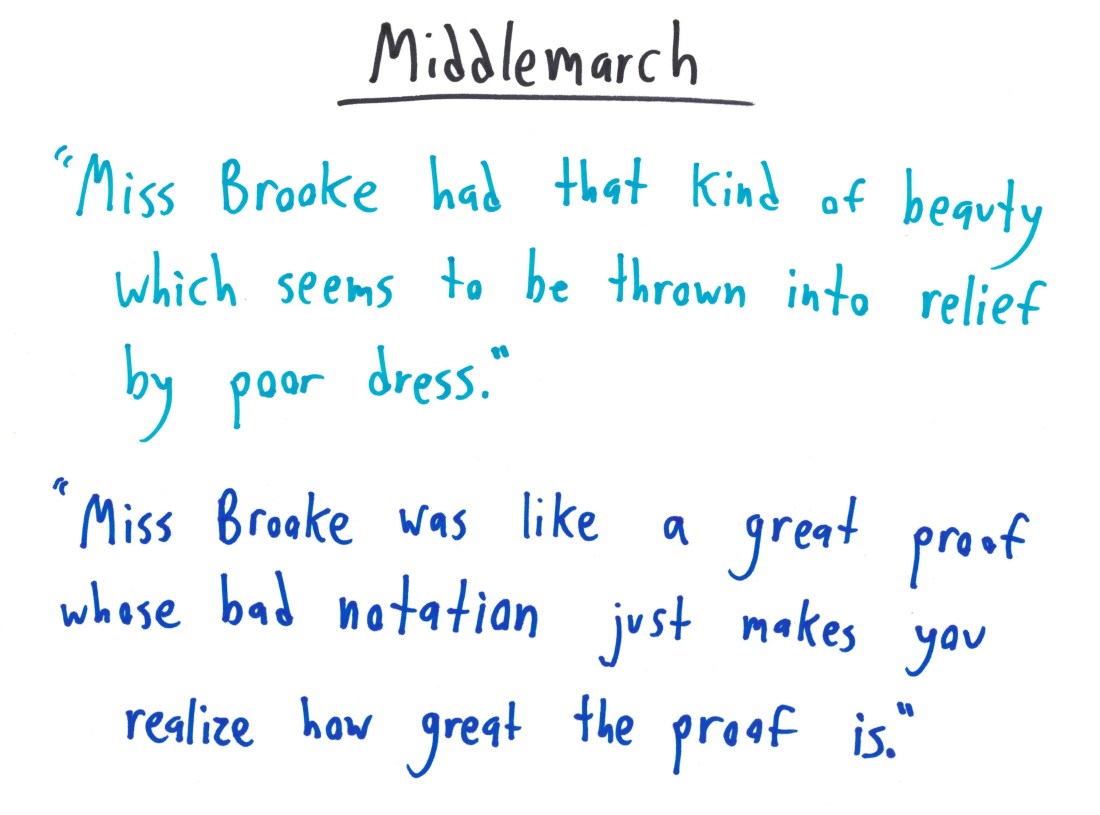 Middlemarch
"Miss Brooke had that kind of beauty
which seems to be thrown into relief
by poor dress."
"Miss Brooke was like a great proof
whose bad notation just makes you
realize how great the proof is."